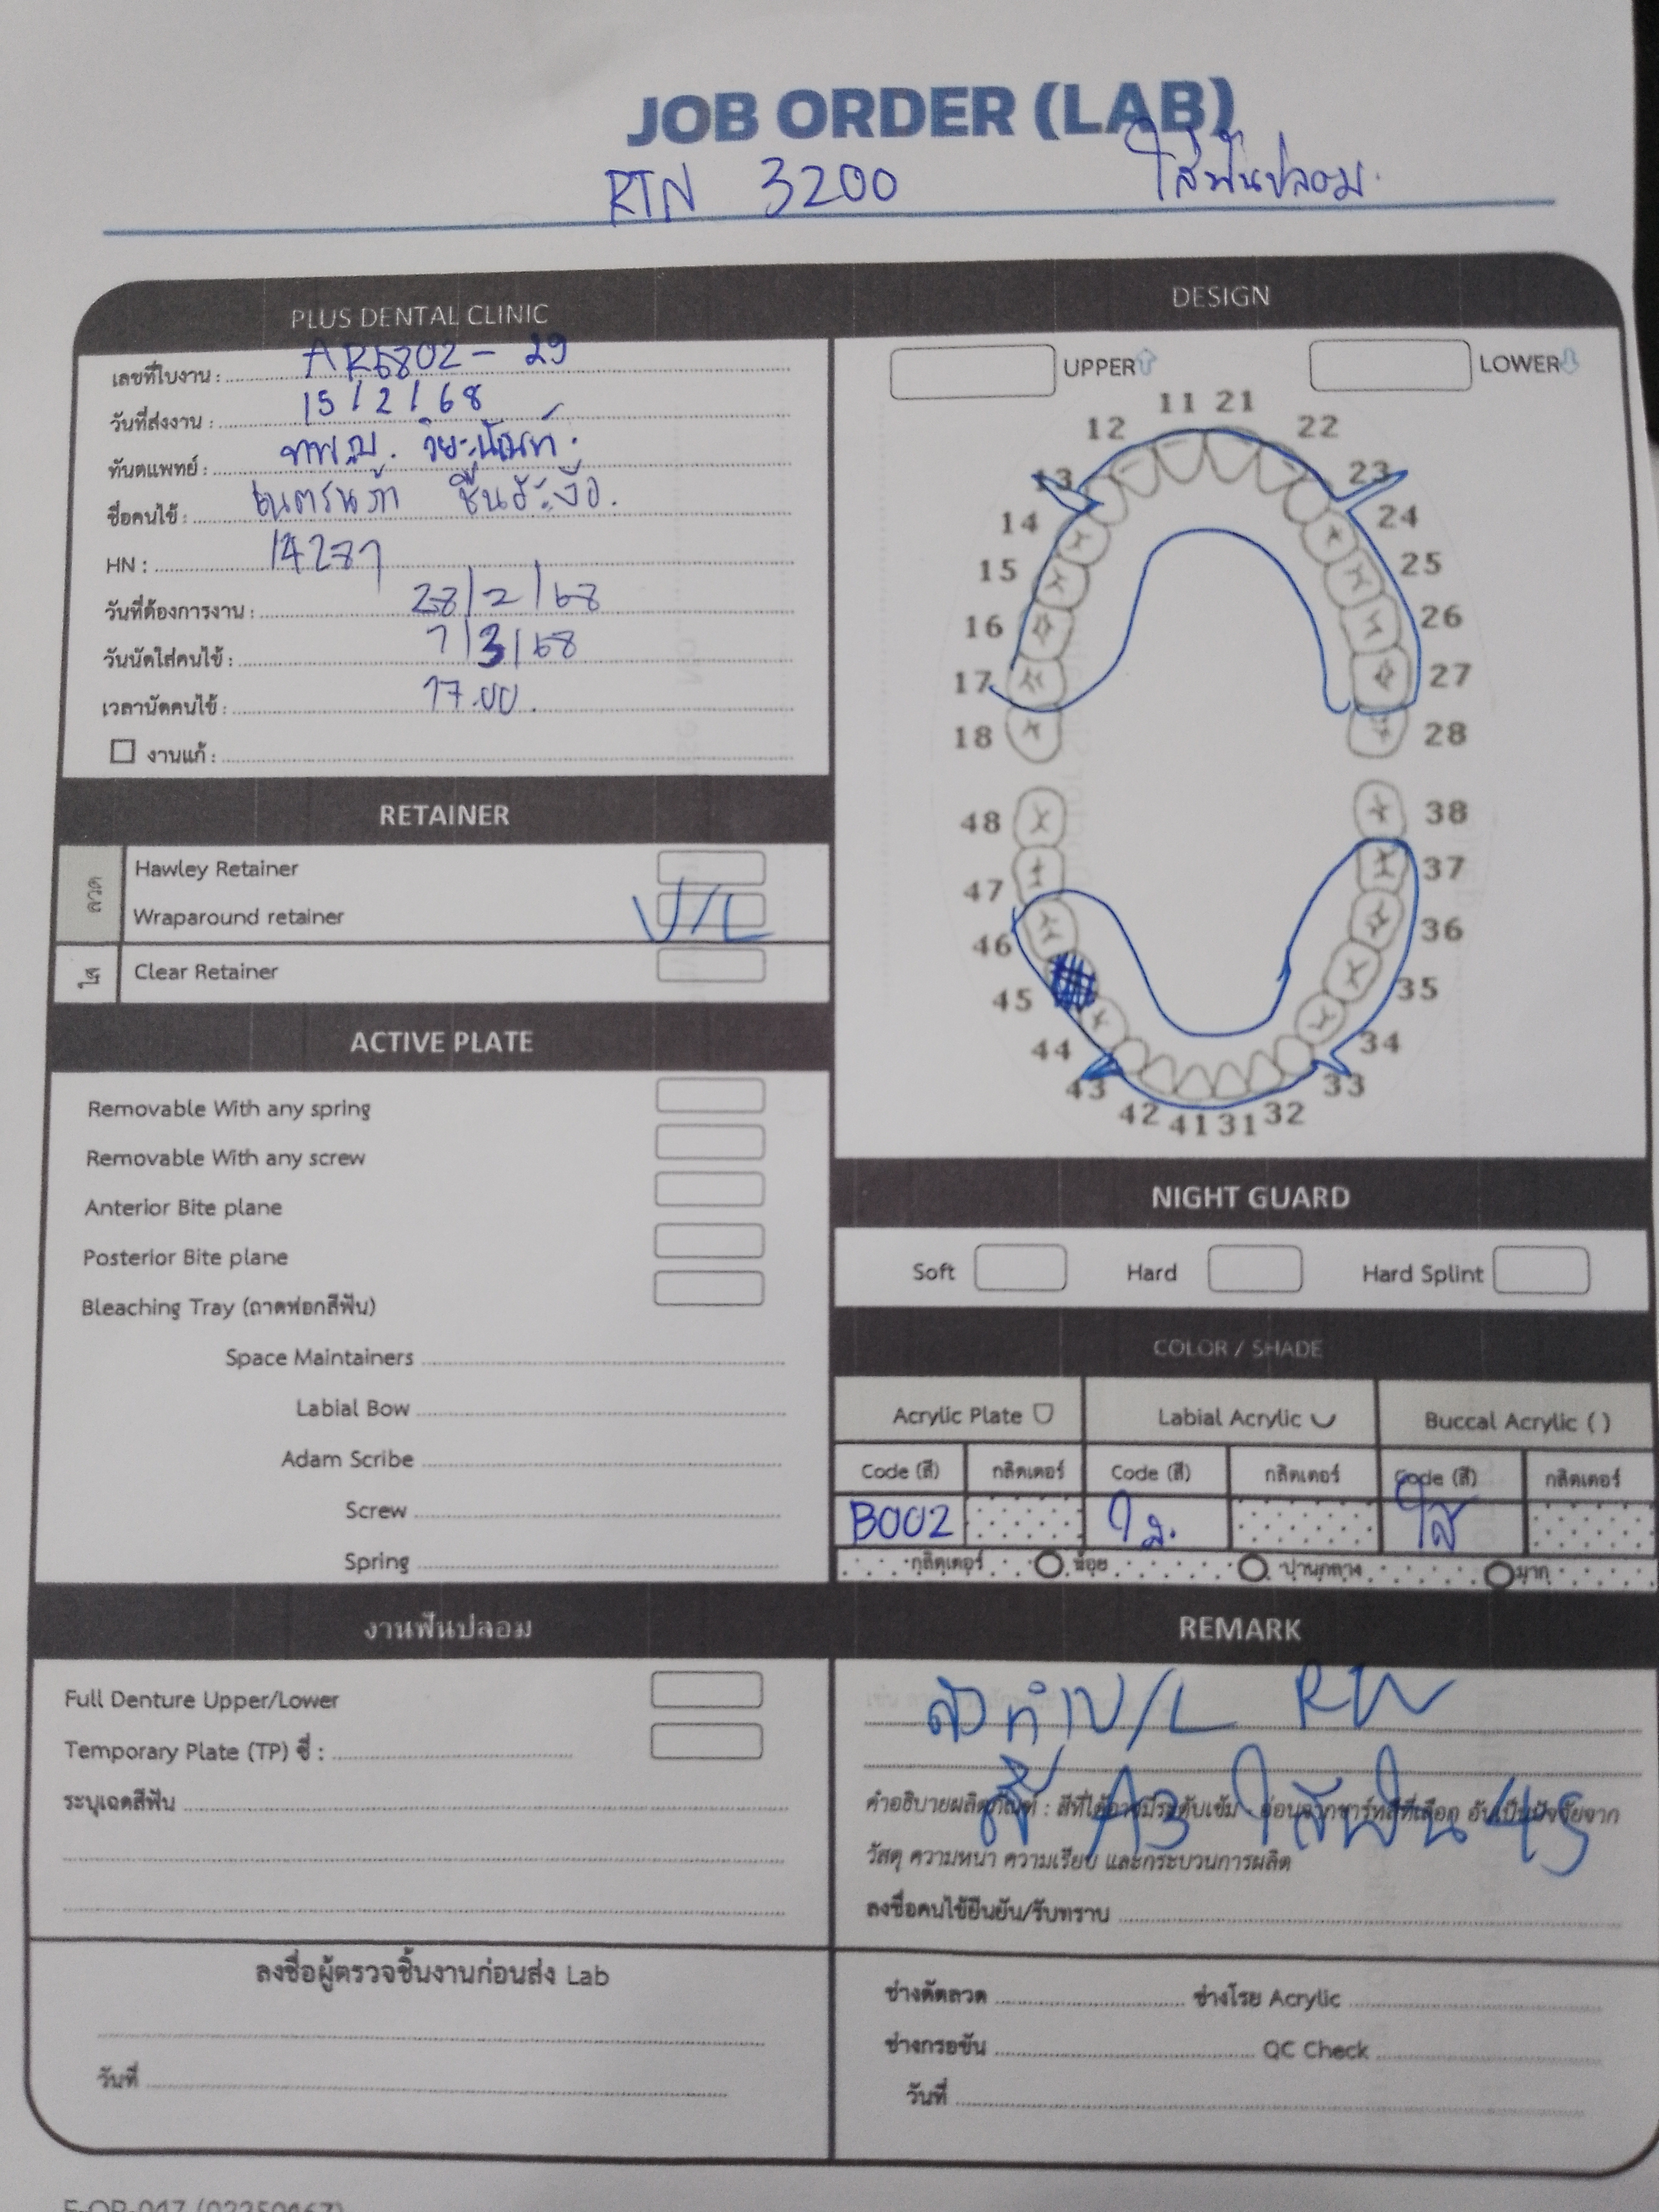 JOB ORDER (LAB)
RTN 3200 ใส่ฟันปลอม.
PLUS DENTAL CLINIC
เลขที่ใบงาน : AR6802 - 29
วันที่ส่งงาน : 15 / 2 / 68
ทันตแพทย์ : ทพ.ญ.
ชื่อคนไข้ : เนตรนภา
HN :
วันที่ต้องการงาน : 28/2/68
วันนัดใส่คนไข้ : 7/3/68
เวลานัดคนไข้ : 17.00.
งานแก้ :
DESIGN
UPPER LOWER
11 21
12 22
13 23
14 24
15 25
16 26
17 27
18 28
48 38
47 37
46 36
45 35
44 34
43 33
42 41 31 32
RETAINER
ลวด
Hawley Retainer
Wraparound retainer U/L
ใส
Clear Retainer
ACTIVE PLATE
Removable With any spring
Removable With any screw
Anterior Bite plane
Posterior Bite plane
Bleaching Tray (ถาดฟอกสีฟัน)
Space Maintainers
Labial Bow
Adam Scribe
Screw
Spring
NIGHT GUARD
Soft Hard Hard Splint
COLOR / SHADE
Acrylic Plate Labial Acrylic Buccal Acrylic ( )
Code (สี) กลิตเตอร์ Code (สี) กลิตเตอร์ Code (สี) กลิตเตอร์
B002 ใส
กลิตเตอร์ น้อย ปานกลาง มาก
งานฟันปลอม
Full Denture Upper/Lower
Temporary Plate (TP) ซี่ :
ระบุเฉดสีฟัน
ลงชื่อผู้ตรวจชิ้นงานก่อนส่ง Lab
วันที่
REMARK
สั่งทำ U/L RW
สี A3 ใส่ฟัน 45
คำอธิบายผลิตภัณฑ์ : สีที่ได้อาจมีระดับเข้ม อ่อนจากชาร์ทสีที่เลือก อันเป็นปัจจัยจาก
วัสดุ ความหนา ความเรียบ และกระบวนการผลิต
ลงชื่อคนไข้ยืนยัน/รับทราบ
ช่างดัดลวด ช่างโรย Acrylic
ช่างกรอขัน QC Check
วันที่